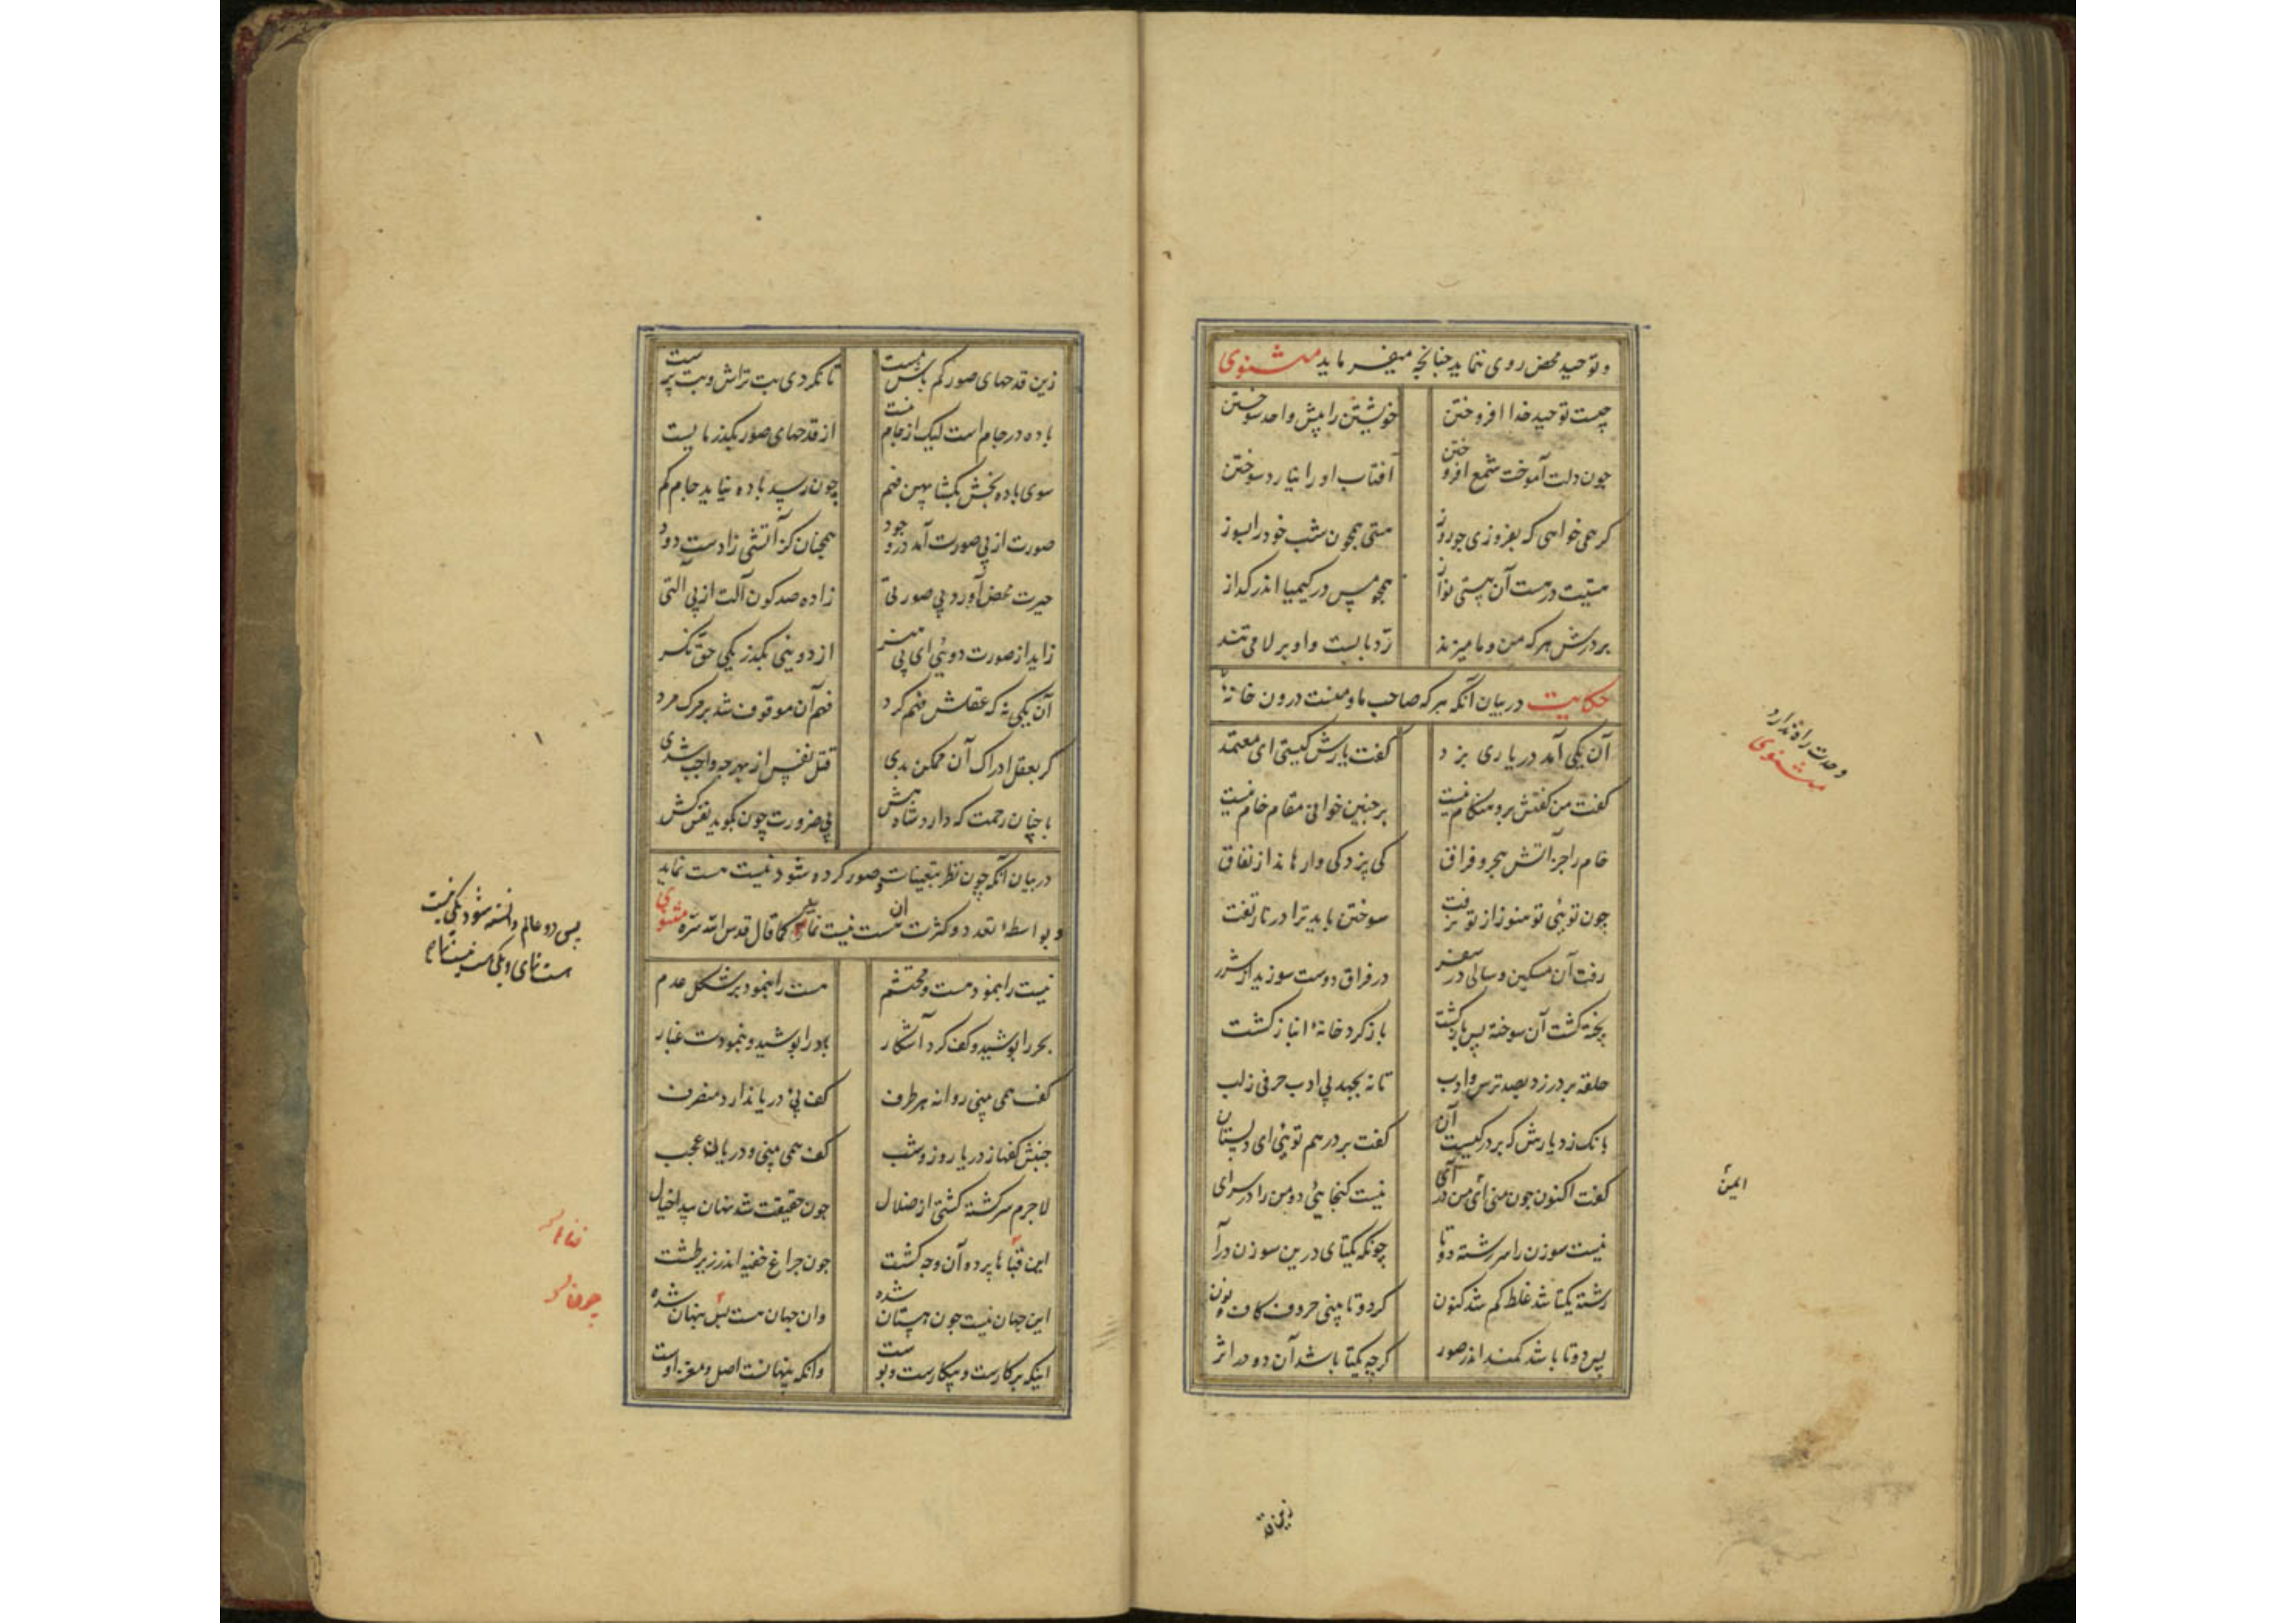 و توحید محض روی نماید چنانچه میفرماید مثنوی
چیست توحید خدا افروختن خویشتن را پیش واحد سوختن
چون دلت آموخت شمع افروختن آفتاب او را نیارد سوختن
کر همی خواهی که بفروزی چو روز هستی همچون شب خود را بسوز
هستیت در هست آن هستی نواز همچو مس در کیمیا اندر کداز
بر درش هر که من و ما میزند رد بابست و او بر لا می تند
حکایت در بیان آنکه هر که صاحب ما و منست درون خانهٔ
وحدت راه ندارد
مثنوی
آن یکی آمد در یاری بزد کفت یارش کیستی ای معتمد
کفت من کفتش برو هنکام نیست بر چنین خوانی مقام خام نیست
خام را جز آتش هجر و فراق کی پزد کی وارهاند از نفاق
چون توئی تو هنوز از تو نرفت سوختن باید ترا در نار تفت
رفت آن مسکین و سالی در سفر در فراق دوست سوزید از شرر
پخته کشت آن سوخته پس بازکشت باز کرد خانهٔ انباز کشت
حلقه بر در زد بصد ترس و ادب تا نه بجهد بی ادب حرفی ز لب
بانک زد یارش که بر در کیست آن کفت بر در هم توئی ای دلستان
کفت اکنون چون منی ای من در آی نیست کنجایی دو من را در سرای
ایمن
نیست سوزن را سر رشته دوتا چونکه یکتای درین سوزن درآ
رشته یکتا شد غلط کم شد کنون کر دوتا بینی حروف کاف و نون
پس دوتا باشد کمند اندر صور کرچه یکتا باشد آن دو در اثر
زین قد
زین قدحهای صور کم باش مست تا نکردی بت تراش و بت پرست
باده در جام است لیک از جام نیست از قدحهای صور بکذر مایست
سوی باده بخش بکشا پهن فم چون رسید باده نیاید جام کم
صورت از بی صورت آمد در وجود همچنان کز آتشی زادست دود
حیرت محض آورد بی صورتی زاده صد کون آلت از بی آلتی
زاید از صورت دوئی ای بی تمیز از دو بینی بکذر یکی حق نکر
آن یکی نه که عقلش فهم کرد فهم آن موقوف شد بر مرک مرد
کر بعقل ادراک آن ممکن بدی قتل نفس از بهر چه واجب شدی
با چنان رحمت که دارد شاه هش بی ضرورت چون بکوید نفس کش
در بیان آنکه چون نظر بتعینات و صور کرده شود نیست هست نماید
و بواسطهٔ تعدد و کثرت آن هست نیست نماید کما قال قدس الله سره مثنوی
پس دو عالم دانسته شود یکی نیست
هست نمای و یکی هست نیست نمای
نیست را بنمود هست و محتشم هست را بنمود بر شکل عدم
بحر را پوشید و کف کرد آشکار باد را پوشید و بنمودت غبار
کف همی بینی روانه هر طرف کف بی دریا ندارد منصرف
جنبش کفها ز دریا روز و شب کف همی بینی و دریا نه عجب
لاجرم سرکشته کشتی از ضلال چون حقیقت شد نهان پیدا خیال
این قباها پرده آن وجه کشت چون چراغ خفیه اندر زیر طشت
این جهان نیست چون هستان شده وان جهان هست بس پنهان شده
اینکه بر کارست و بیکارست و پوست وانکه پنهانست اصل و مغز اوست